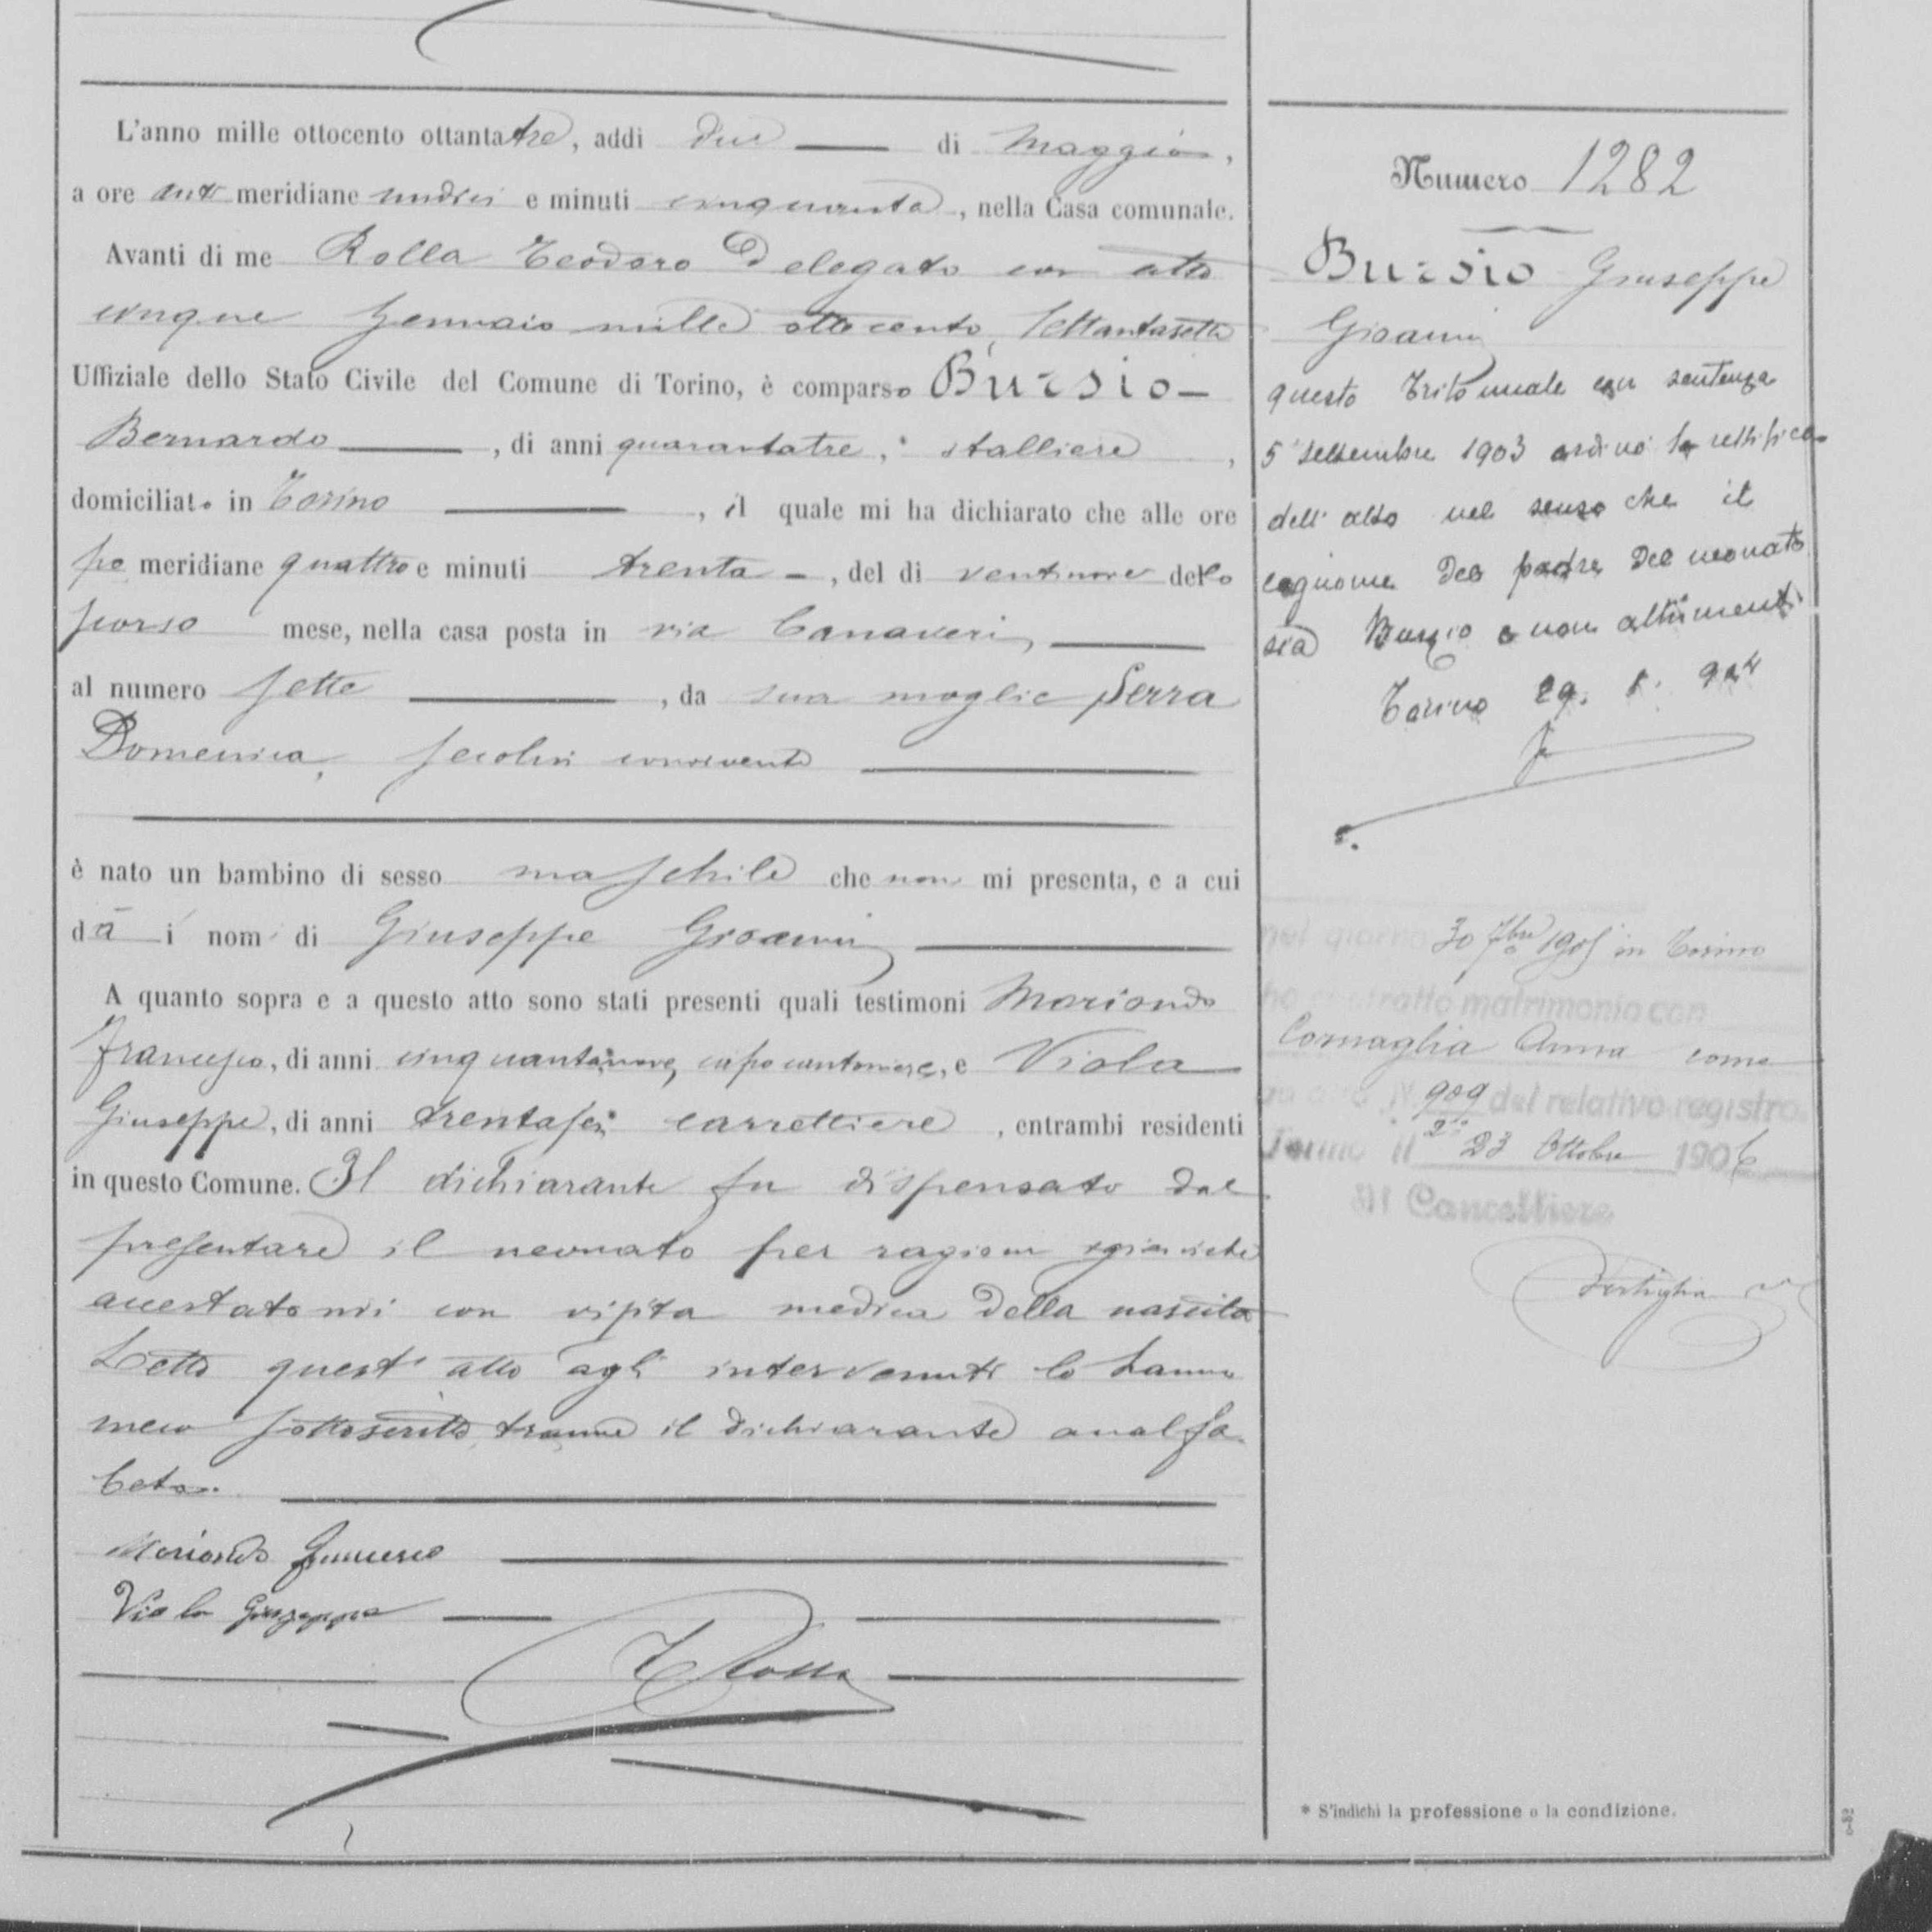 L'anno mille ottocento ottantatre, addi due di Maggio,
a ore anti meridiane undici e minuti cinquanta, nella Casa comunale.
Avanti di me Rolla Teodoro Delegato con atto
cinque Gennaio mille ottocento settantasette
Uffiziale dello Stato Civile del Comune di Torino, è comparso Bursio
Bernardo, di anni quarantatre, stalliere,
domiciliato in Torino, il quale mi ha dichiarato che alle ore
po meridiane quattro e minuti trenta, del di ventinove dello
scorso mese, nella casa posta in via Canaveri,
al numero sette, da sua moglie Serra
Domenica, secolui convivente
è nato un bambino di sesso maschile che non mi presenta, e a cui
dà i nomi di Giuseppe Gioanni
A quanto sopra e a questo atto sono stati presenti quali testimoni Moriondo
Francesco, di anni cinquantanove, capo cantoniere, e Viola
Giuseppe, di anni trentasei carrettiere, entrambi residenti
in questo Comune. Il dichiarante fu dispensato dal
presentare il neonato per ragioni igieniche
accertatomi con visita medica della nascita
Letto quest'atto agli intervenuti lo hanno
meco sottoscritto, tranne il dichiarante analfa
beta.
Moriondo Francesco
Viola Giuseppe
T Rolla
Numero 1282
Bursio Giuseppe
Gioanni
questo Tribunale con sentenza
5 settembre 1903 ordinò la rettifica
dell'atto nel senso che il
cognome del padre del neonato
sia e non altrimenti
Torino 29.
nel giorno 30 7bre 1905 in Torino
ha contratto matrimonio con
Cornaglia Anna come
da atto N. 909 del relativo registro
Torino il 23 Ottobre 1906
Il Cancelliere
* S'indichi la professione o la condizione.